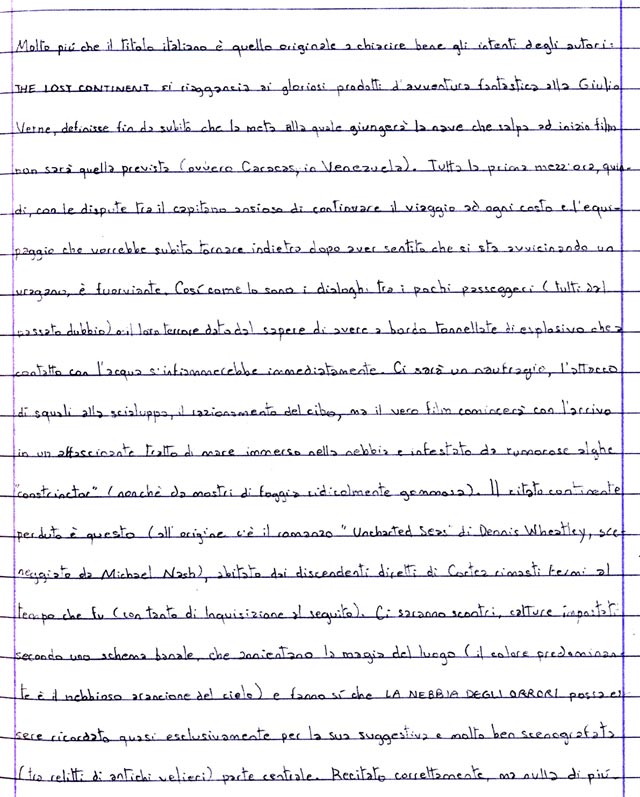 Molto più che il titolo italiano è quello originale a chiarire bene gli intenti degli autori:
THE LOST CONTINENT si riaggancia ai gloriosi prodotti d'avventura fantastica alla Giulio
Verne, definisse fin da subito che la meta alla quale giungerà la nave che salpa ad inizio film
non sarà quella prevista (ovvero Caracas, in Venezuela). Tutta la prima mezz'ora, quin-
di, con le dispute tra il capitano ansioso di continuare il viaggio ad ogni costo e l'equi-
paggio che vorrebbe subito tornare indietro dopo aver sentito che si sta avvicinando un
uragano, è fuorviante. Così come lo sono i dialoghi tra i pochi passeggeri (tutti dal
passato dubbio) o il loro terrore dato dal sapere di avere a bordo tonnellate di esplosivo che a
contatto con l'acqua s'infiammerebbe immediatamente. Ci sarà un naufragio, l'attacco
di squali alla scialuppa, il razionamento del cibo, ma il vero film comincerà con l'arrivo
in un affascinante tratto di mare immerso nella nebbia e infestato da rumorose alghe
"constrinctor" (nonchè da mostri di foggia ridicolmente gommosa). Il citato continente
perduto è questo (all'origine c'è il romanzo "Uncharted Seas" di Dennis Wheatley, sce-
neggiato da Michael Nash), abitato dai discendenti diretti di Cortez rimasti fermi al
tempo che fu (con tanto di Inquisizione al seguito). Ci saranno scontri, catture impostati
secondo uno schema banale, che annientano la magia del luogo (il colore predominan
te è il nebbioso arancione del cielo) e fanno sì che LA NEBBIA DEGLI ORRORI possa es
sere ricordato quasi esclusivamente per la sua suggestiva e molto ben scenografata
(tra relitti di antichi velieri) parte centrale. Recitato correttamente, ma nulla di più.